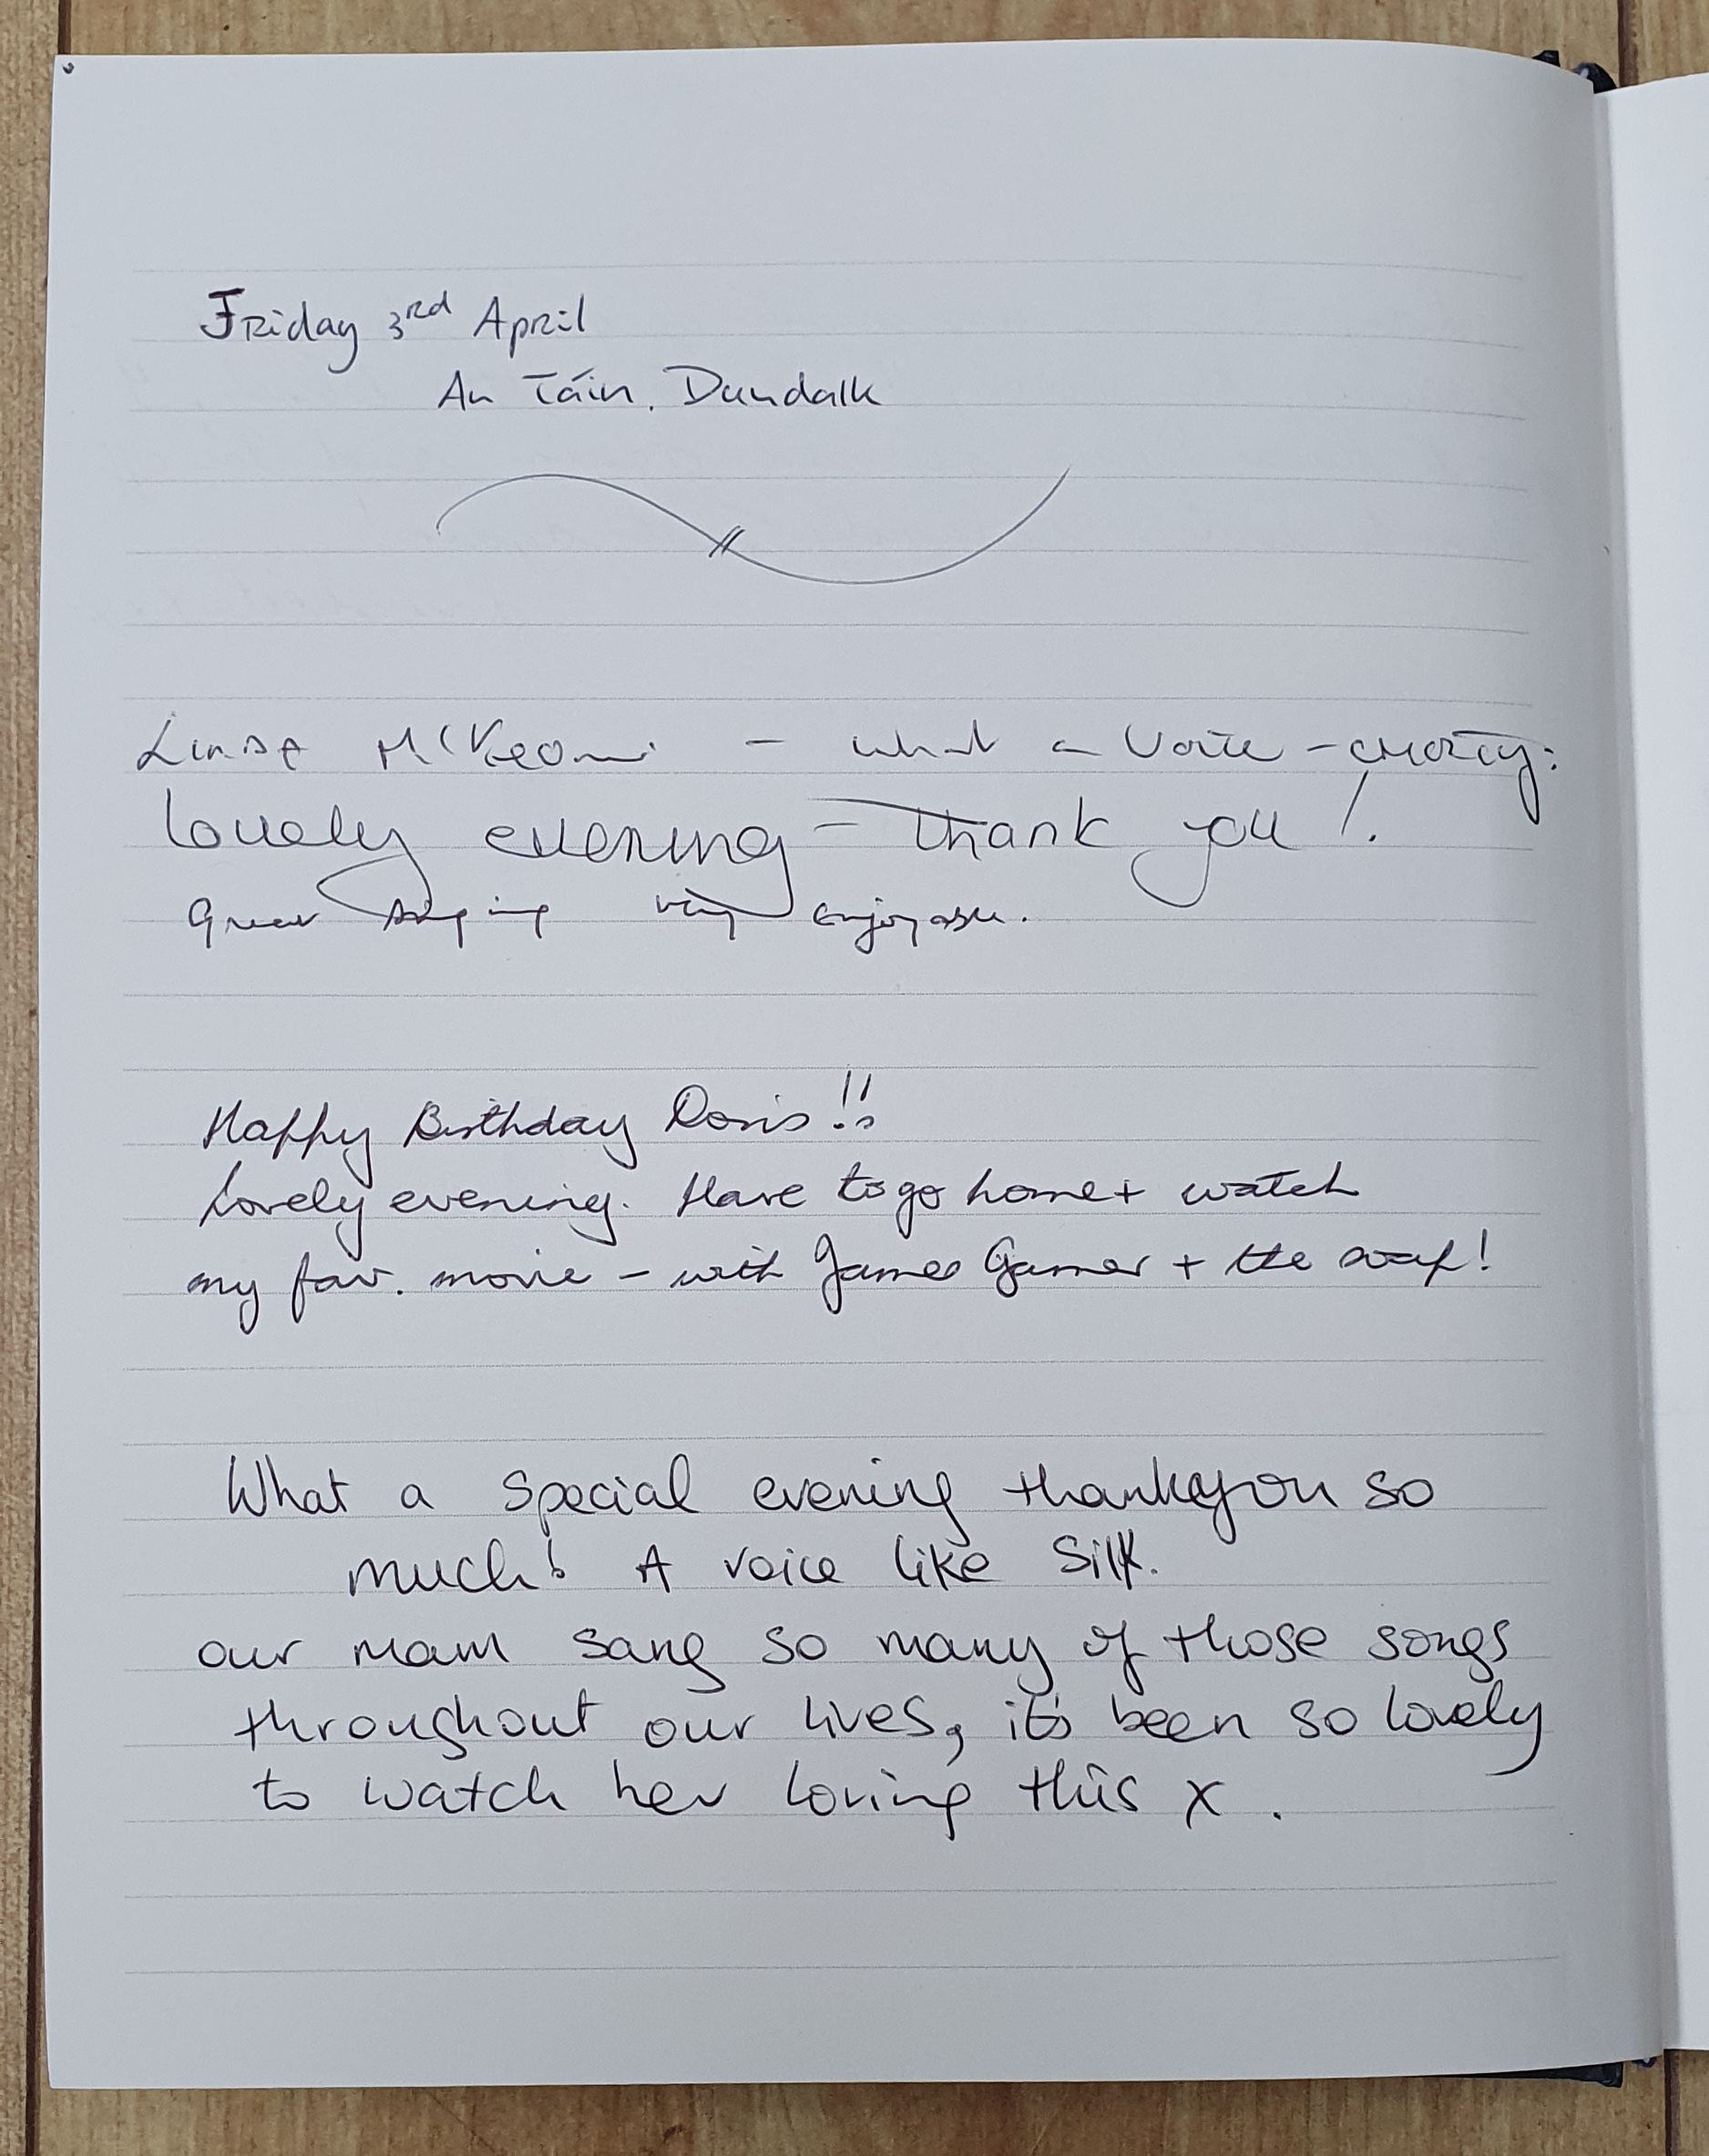 Friday 3rd April
An Táin, Dundalk
Linda McKeown - what a voice -
lovely evening - thank you!.
Great singing very enjoyable.
Happy Birthday Doris!!
Lovely evening. Have to go home + watch
my fav. movie - with James Garner + the soap!
What a special evening thankyou so
much! A voice like silk.
our mam sang so many of those songs
throughout our lives, it's been so lovely
to watch her loving this x.